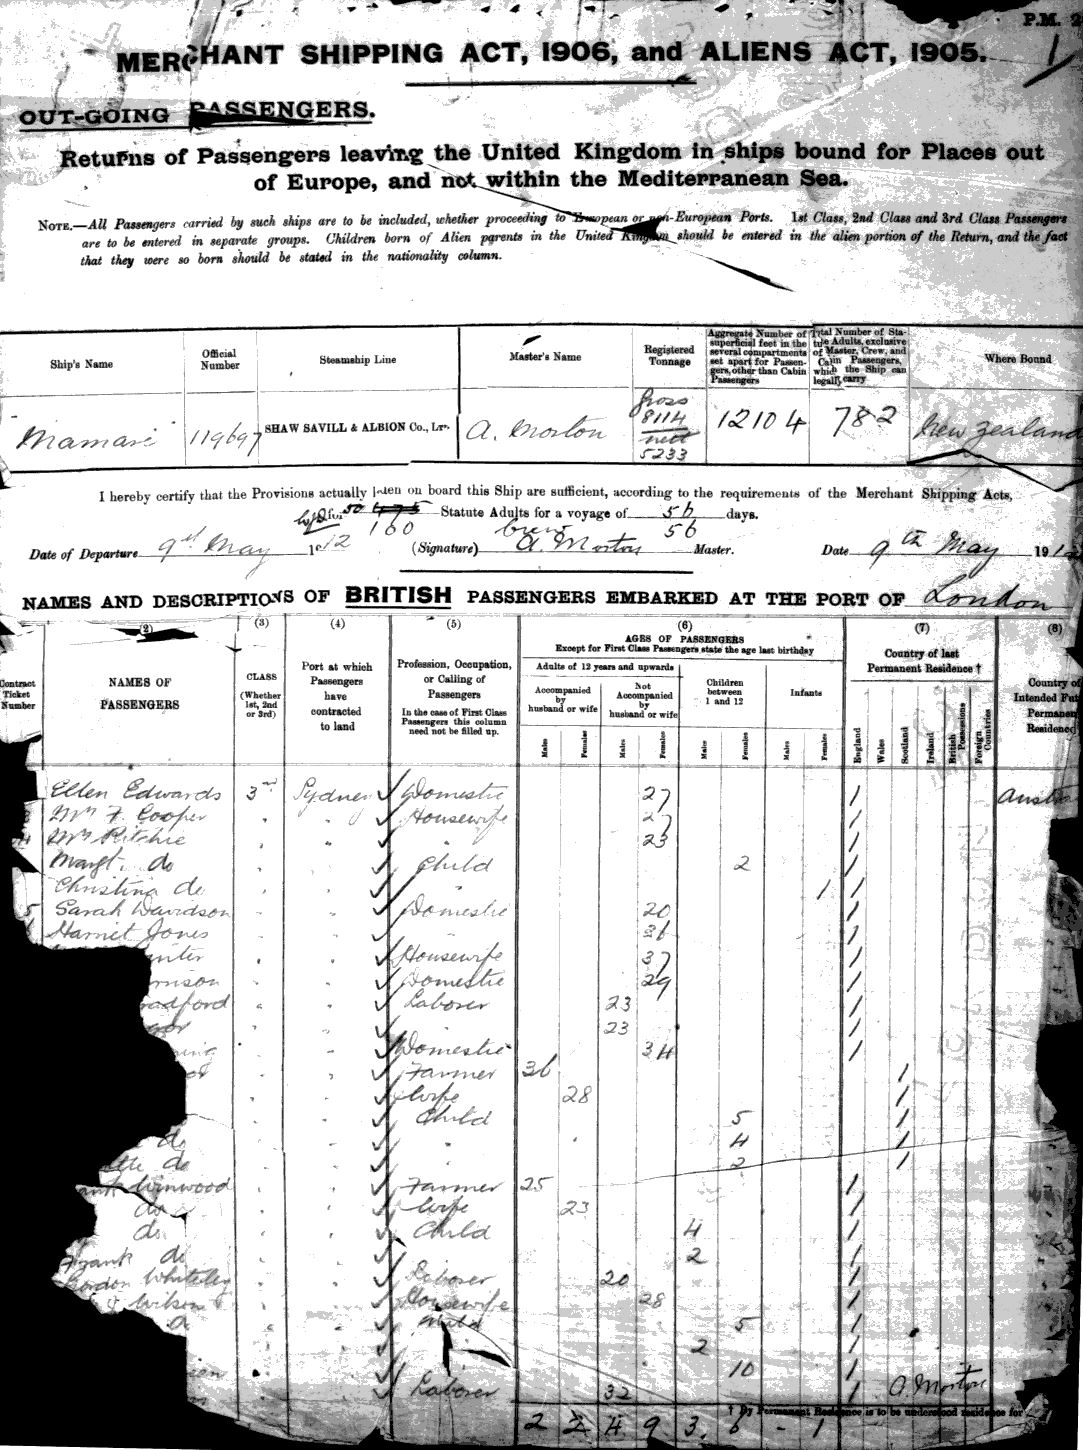 P.M. 2
1
MERCHANT SHIPPING ACT, 1906, and ALIENS ACT, 1905.
OUT-GOING PASSENGERS.
Returns of Passengers leaving the United Kingdom in ships bound for Places out
of Europe, and not within the Mediterranean Sea.
NOTE.—All Passengers carried by such ships are to be included, whether proceeding to European or non-European Ports. 1st Class, 2nd Class and 3rd Class Passengers
are to be entered in separate groups. Children born of Alien parents in the United Kingdom should be entered in the alien portion of the Return, and the fact
that they were so born should be stated in the nationality column.
Ship's Name
Official Number
Steamship Line
Master's Name
Registered Tonnage
Aggregate Number of superficial feet in the several compartments set apart for Passengers, other than Cabin Passengers
Total Number of Statute Adults, exclusive of Master, Crew, and Cabin Passengers, which the Ship can legally carry
Where Bound
Mamari 119697 SHAW SAVILL & ALBION Co., LTD. A. Morton gross 8114 nett 5233 12104 782 New Zealand
I hereby certify that the Provisions actually laden on board this Ship are sufficient, according to the requirements of the Merchant Shipping Acts,
for 50 Statute Adults for a voyage of 56 days.
160 crew 56
Date of Departure 9th May 1912 (Signature) A. Morton Master. Date 9th May 191
NAMES AND DESCRIPTIONS OF BRITISH PASSENGERS EMBARKED AT THE PORT OF London
(2) (3) (4) (5) (6) (7) (8)
Contract Ticket Number
NAMES OF PASSENGERS
CLASS (Whether 1st, 2nd or 3rd)
Port at which Passengers have contracted to land
Profession, Occupation, or Calling of Passengers
In the case of First Class Passengers this column need not be filled up.
AGES OF PASSENGERS
Except for First Class Passengers state the age last birthday
Adults of 12 years and upwards
Accompanied by husband or wife
Not Accompanied by husband or wife
Children between 1 and 12
Infants
Males Females Males Females Males Females Males Females
Country of last Permanent Residence †
England Wales Scotland Ireland British Possessions Foreign Countries
Country of Intended Fut Permanen Residence
Ellen Edwards 3rd Sydney Domestic 27 / Austra
Mrs F. Cooper " " Housewife 27 /
Mrs Ritchie " " " 23 /
Margt. do " " Child 2 /
Christina do " " " 1 /
5 Sarah Davidson " " Domestic 20 /
Harriet Jones " " 36 /
nter " " Housewife 37 /
rrison " " Domestic 29 /
adford " " Laborer 23 /
" " 23 /
ning " " Domestic 34 /
" " Farmer 36 /
" " Wife 28 /
" " Child 5 /
do " " " 4 /
do " " 2 /
ank Winwood " " Farmer 25 /
do " " Wife 23 /
do " " Child 4 /
Frank do " " 2 /
Gordon Whiteley " " Laborer 20 /
Wilson " " Housewife 28 /
" " Child 5 /
" 2 /
" 10 /
" " Laborer 32 / A. Morton
† By Permanent Residence is to be understood residence for
2 2 4 9 3 6 - 1